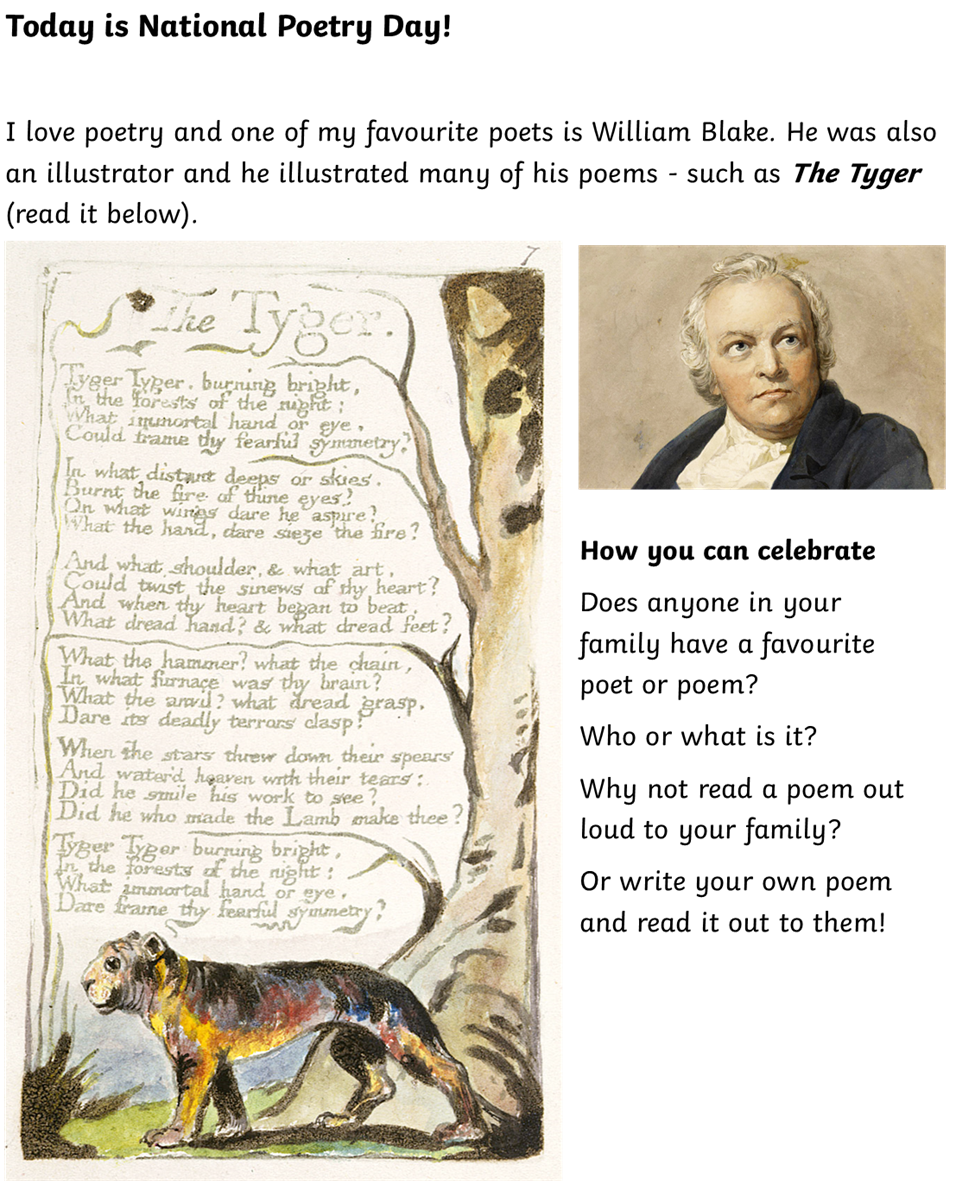 Today is National Poetry Day!
I love poetry and one of my favourite poets is William Blake. He was also
an illustrator and he illustrated many of his poems - such as The Tyger
(read it below).
7
The Tyger.
Tyger Tyger, burning bright,
In the forests of the night;
What immortal hand or eye,
Could frame thy fearful symmetry?
In what distant deeps or skies,
Burnt the fire of thine eyes?
On what wings dare he aspire?
What the hand, dare sieze the fire?
And what shoulder, & what art,
Could twist the sinews of thy heart?
And when thy heart began to beat,
What dread hand? & what dread feet?
What the hammer? what the chain,
In what furnace was thy brain?
What the anvil? what dread grasp,
Dare its deadly terrors clasp!
When the stars threw down their spears
And water'd heaven with their tears:
Did he smile his work to see?
Did he who made the Lamb make thee?
Tyger Tyger burning bright,
In the forests of the night:
What immortal hand or eye,
Dare frame thy fearful symmetry?
How you can celebrate
Does anyone in your
family have a favourite
poet or poem?
Who or what is it?
Why not read a poem out
loud to your family?
Or write your own poem
and read it out to them!